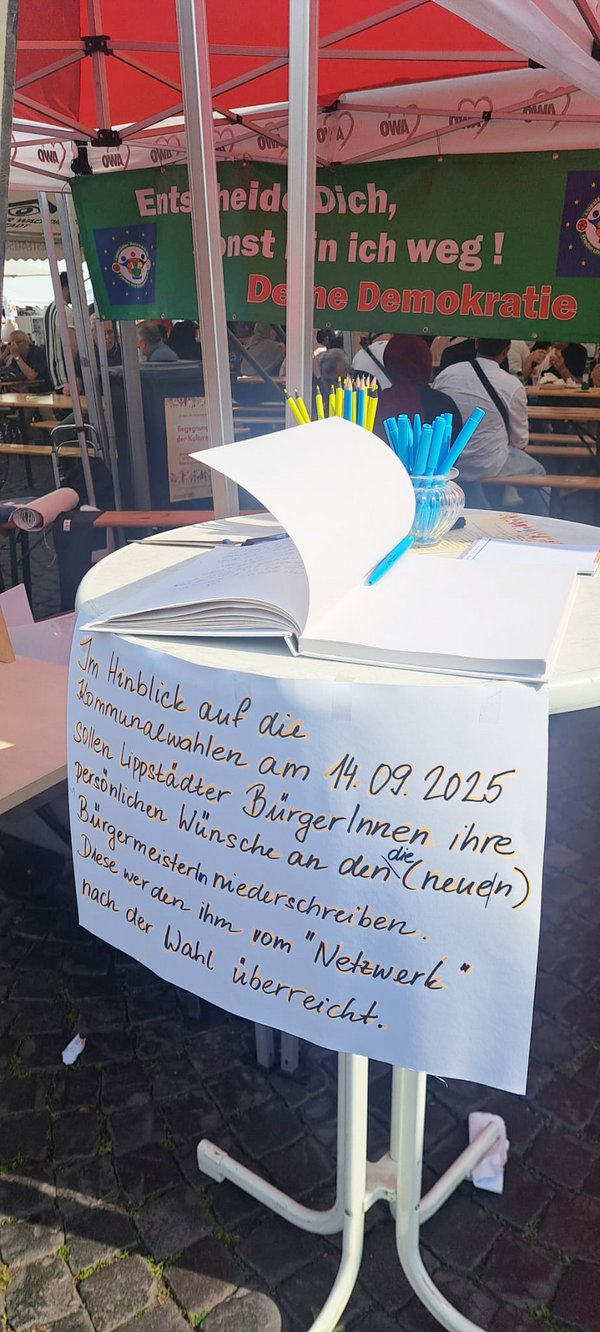 OWA OWA OWA OWA OWA OWA OWA
Entscheide Dich,
sonst bin ich weg !
Deine Demokratie
Begegnung
der Kulturen
Im Hinblick auf die
Kommunalwahlen am 14.09.2025
sollen Lippstädter BürgerInnen ihre
persönlichen Wünsche an den/die (neue/n)
BürgermeisterIn niederschreiben.
Diese werden ihm vom "Netzwerk"
nach der Wahl überreicht.